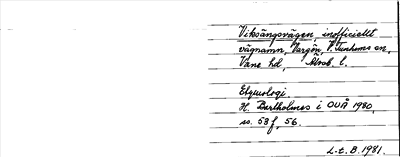 Viksängsvägen, inofficiellt
vägnamn, Vargön, V. Tunhems sn,
Väne hd, Älvsb. l.
Etymologi
H. Bertholmes i OUÅ 1980,
ss. 53 f, 56.
L.t.B. 1981.